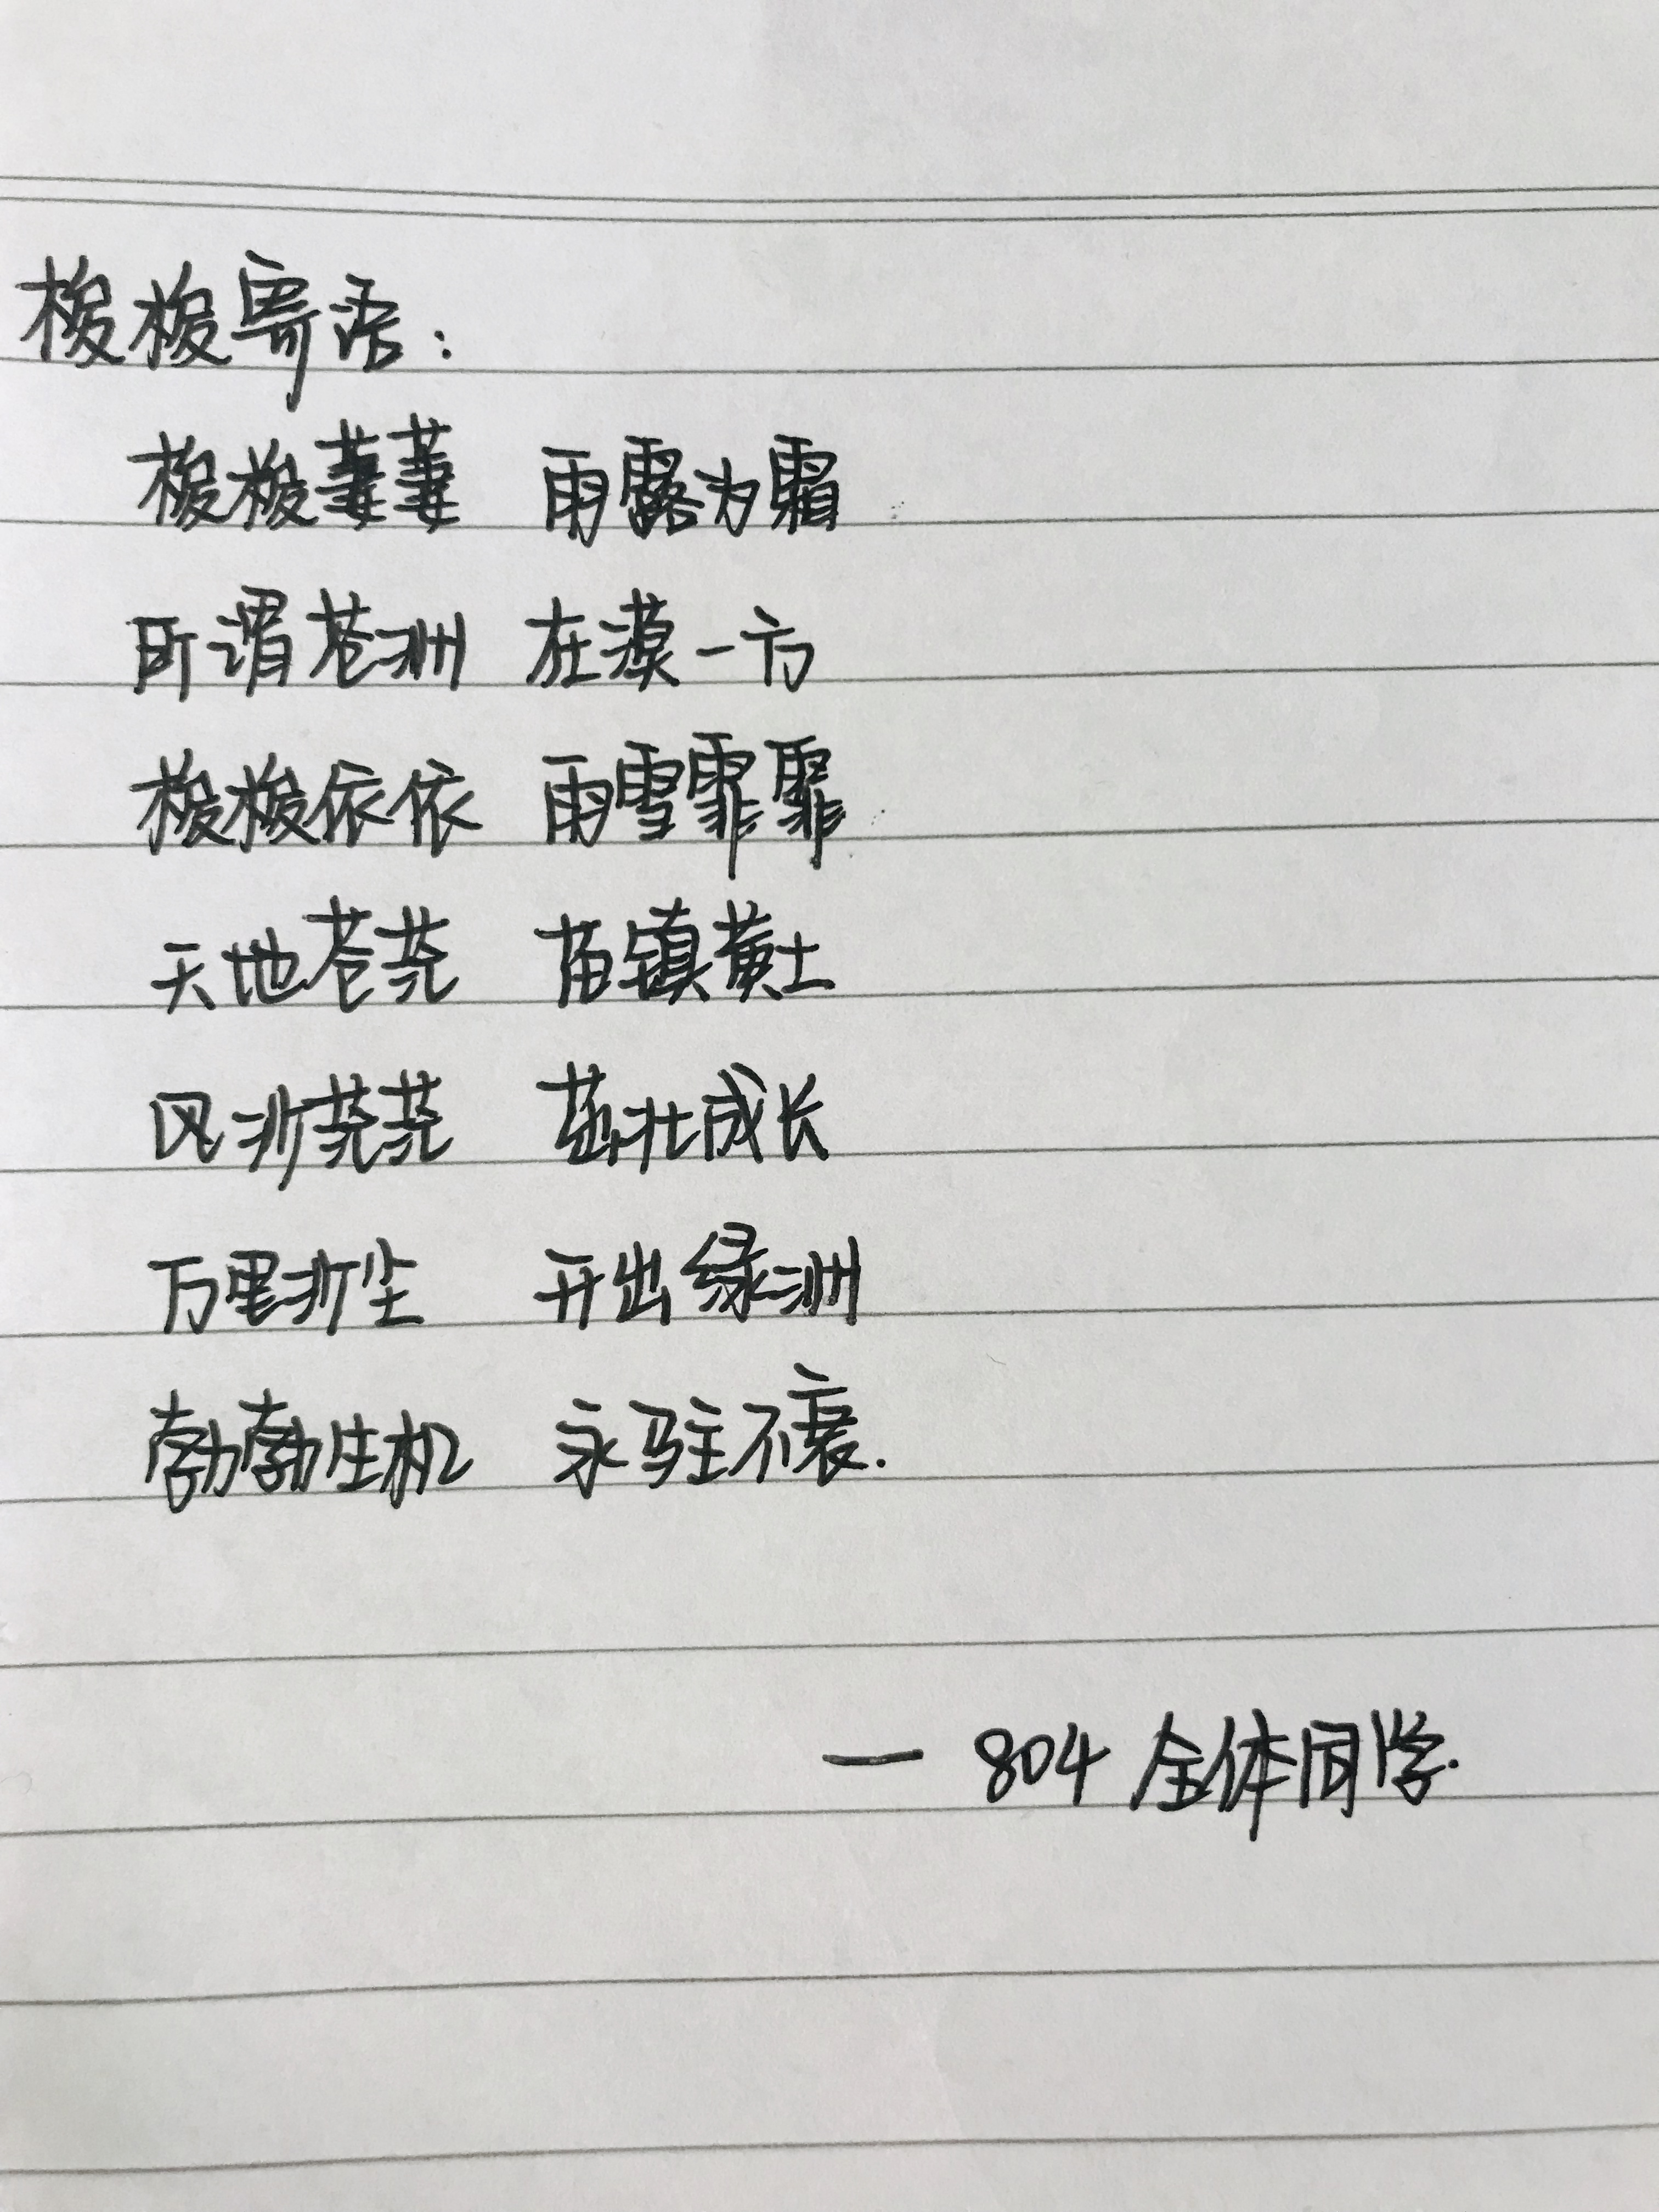 梭梭寄语：
梭梭萋萋 雨露为霜
所谓苍洲 在漠一方
梭梭依依 雨雪霏霏
天地苍茫 苗镇黄土
风沙茫茫 茁壮成长
万里沙尘 开出绿洲
勃勃生机 永驻不衰.
— 804 全体同学.